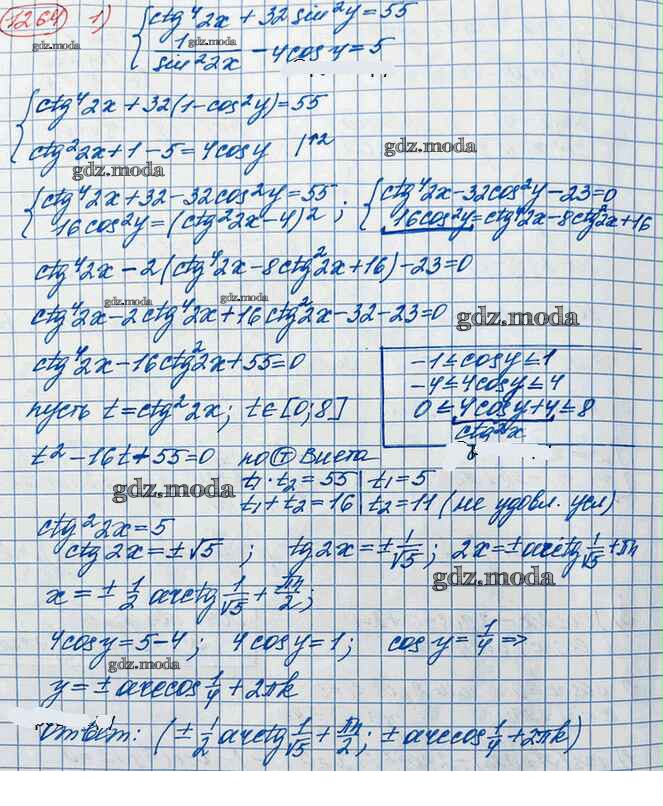 1264 1) { ctg⁴2x + 32sin²y = 55
gdz.moda
1/sin²2x - 4cosy = 5
gdz.moda
{ ctg⁴2x + 32(1-cos²y) = 55
ctg²2x + 1 - 5 = 4cosy |↑2
gdz.moda gdz.moda
{ ctg⁴2x + 32 - 32cos²y = 55 ; { ctg⁴2x - 32cos²y - 23 = 0
16cos²y = (ctg²2x - 4)² ; 16cos²y = ctg⁴2x - 8ctg²2x + 16
ctg⁴2x - 2(ctg⁴2x - 8ctg²2x + 16) - 23 = 0
gdz.moda gdz.moda
ctg⁴2x - 2ctg⁴2x + 16ctg²2x - 32 - 23 = 0
gdz.moda
ctg⁴2x - 16ctg²2x + 55 = 0
-1 ≤ cosy ≤ 1
-4 ≤ 4cosy ≤ 4
0 ≤ 4cosy + 4 ≤ 8
ctg²2x
пусть t = ctg²2x; t ∈ [0; 8]
t² - 16t + 55 = 0 по Т Виета
t₁ · t₂ = 55 | t₁ = 5
gdz.moda
t₁ + t₂ = 16 | t₂ = 11 (не удовл. усл)
ctg²2x = 5
ctg2x = ±√5 ; tg2x = ± 1/√5 ; 2x = ± arctg 1/√5 + πn
gdz.moda
x = ± 1/2 arctg 1/√5 + πn/2 ;
4cosy = 5 - 4 ; 4cosy = 1 ; cosy = 1/4 =>
gdz.moda
y = ± arccos 1/4 + 2πk
gdz.moda
Ответ: (± 1/2 arctg 1/√5 + πn/2 ; ± arccos 1/4 + 2πk)